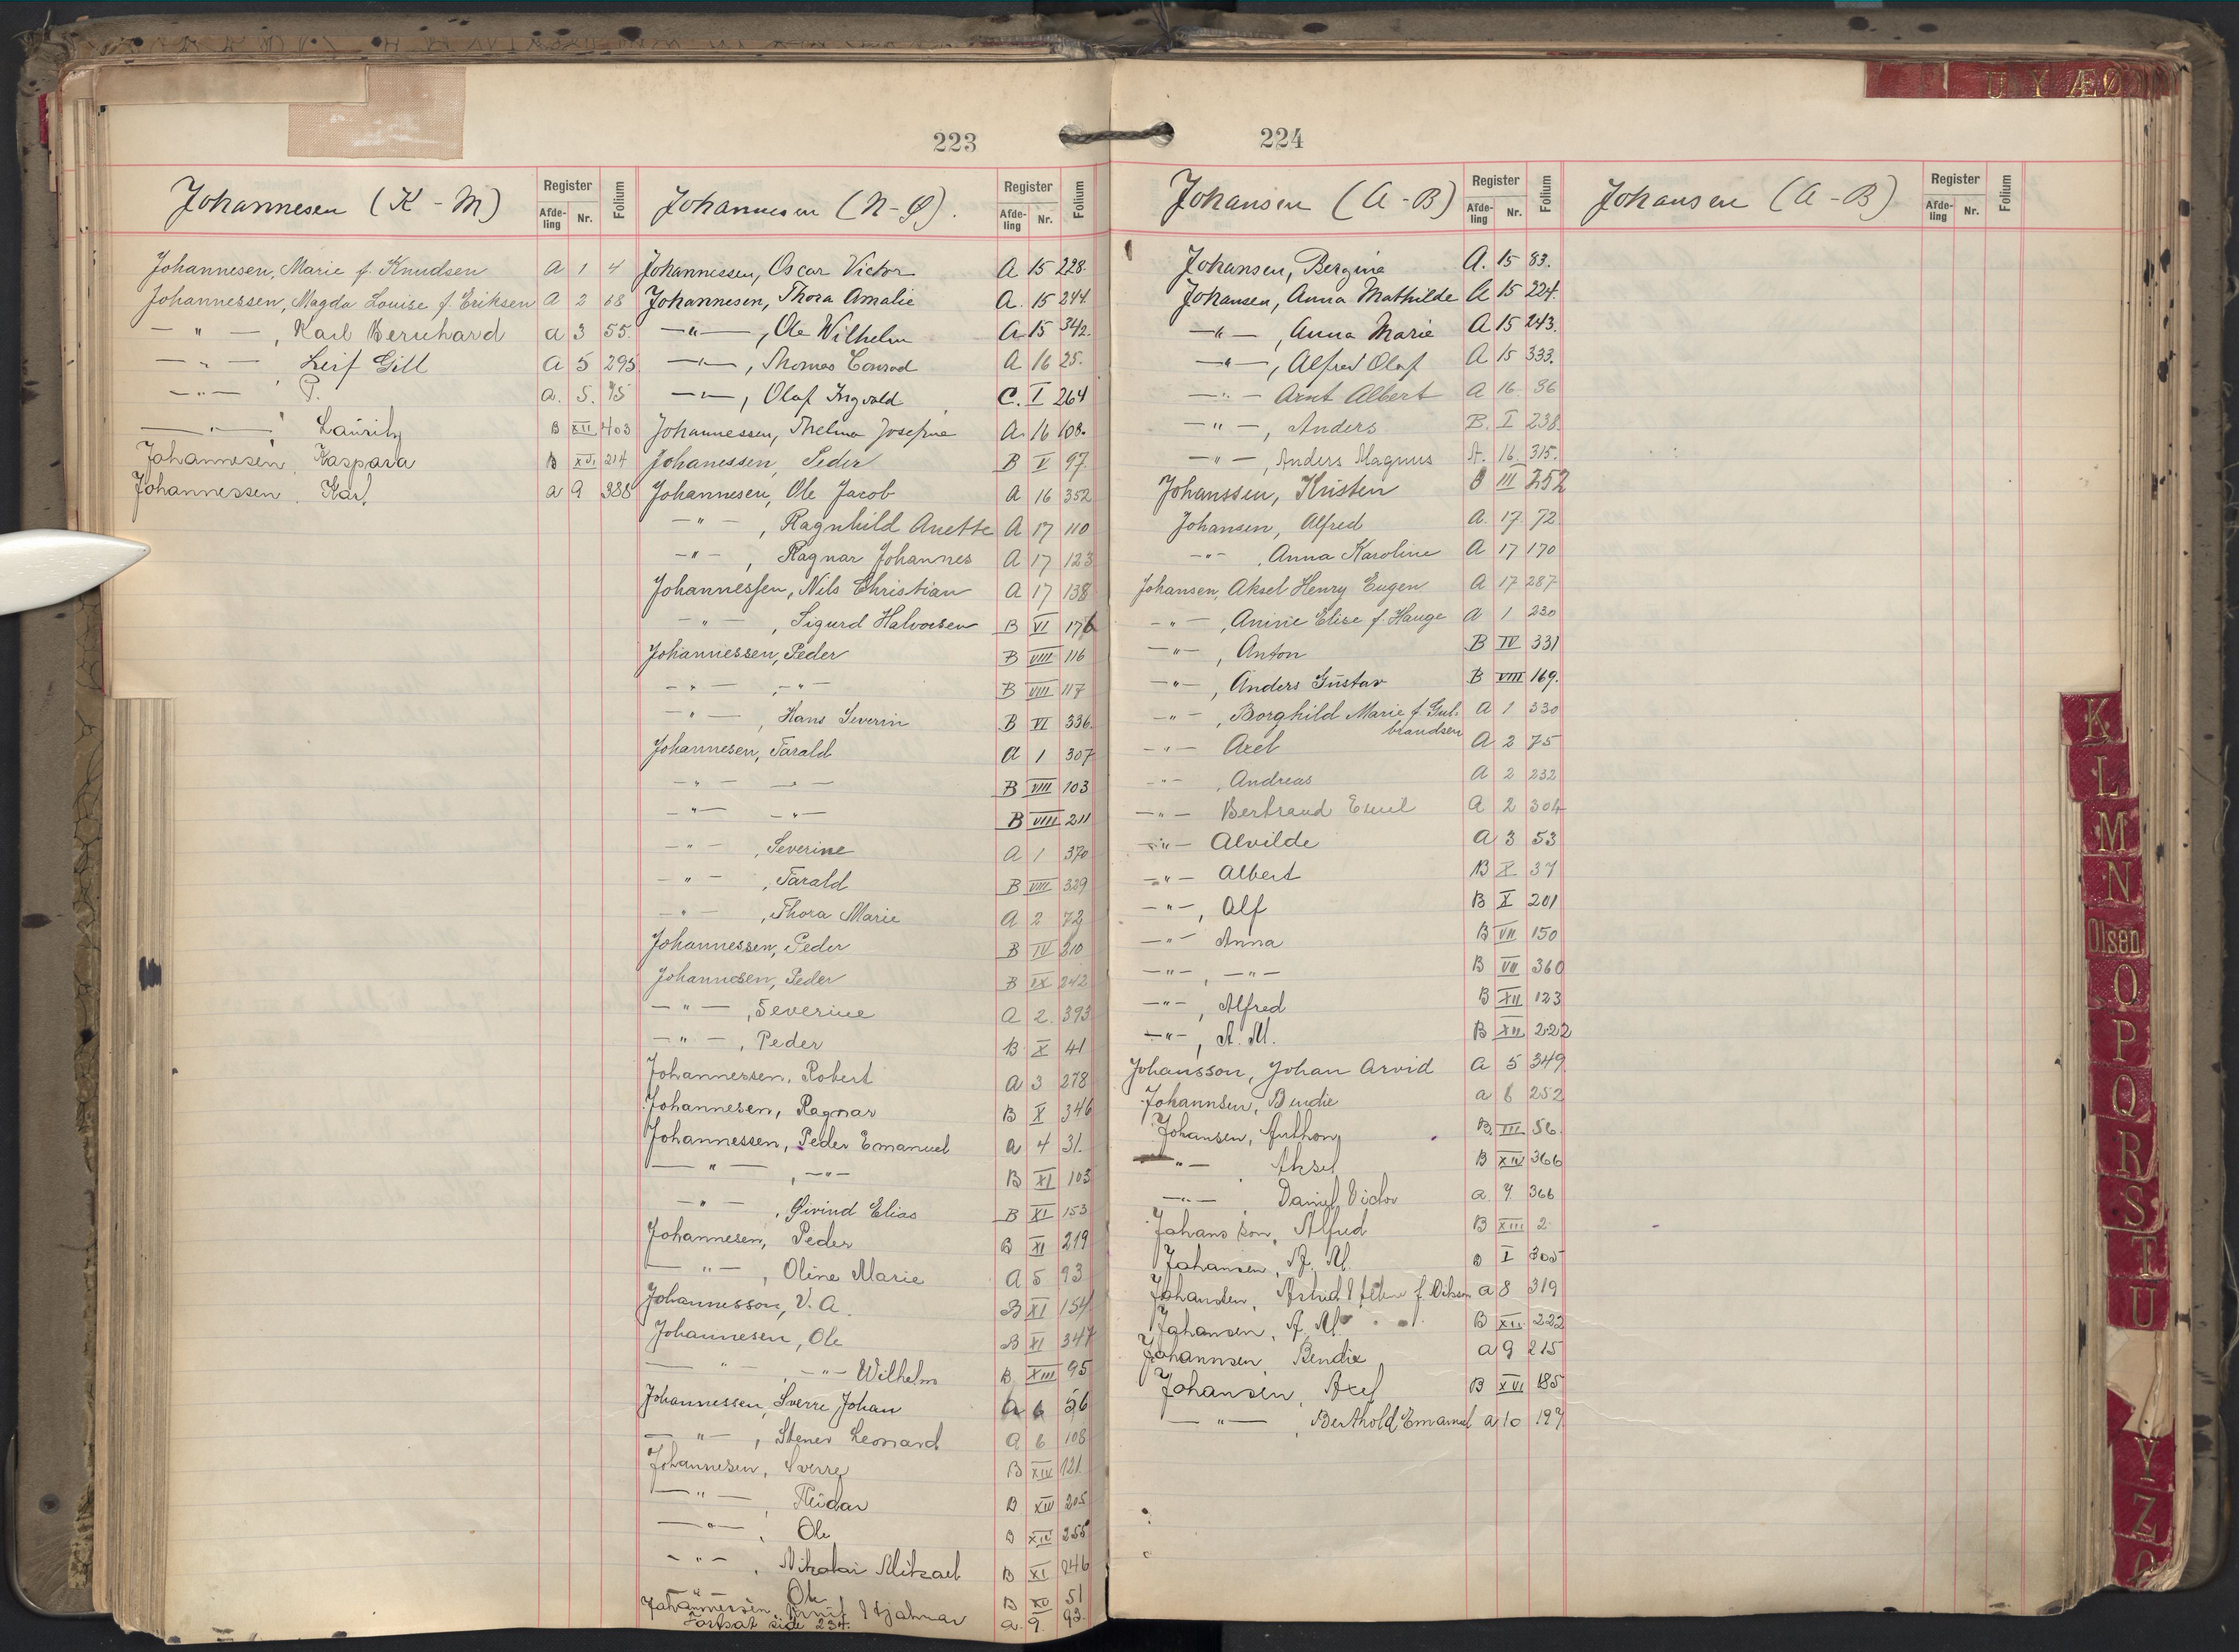 223
Johannesen (K - M)
Register
Afde-
ling
Nr.
Folium
Johannesen, Marie f. Knudsen A 1 4
Johannessen, Magda Louise f. Eriksen A 2 68
— " — , Karl Bernhard a 3 55.
— " — Leif Gill A 5 295
— " — , P. a. 5. 95
— " — , Lauritz B XII 403
Johannesen, Kaspara B XVI 214
Johannessen, Karl a 9 388
Johannesen (N - Ø).
Register
Afde-
ling
Nr.
Folium
Johannessen, Oscar Victor A 15 228.
Johannesen, Thora Amalie A. 15 244.
— " — , Ole Wilhelm A 15 342.
— " — , Thomas Conrad A 16 25.
— " — , Olaf Ingvald C. I 264
Johannessen, Thelma Josefine A. 16 108.
Johanessen, Peder B V 97.
Johannesen, Ole Jacob A 16 352
— " — , Ragnhild Anette A 17 110
— " — , Ragnar Johannes A 17 123
Johannessen, Nils Christian A 17 138
— " — , Sigurd Halvorsen B VI 176
Johannessen, Peder B VIII 116
— " — , — " — B VIII 117
— " — , Hans Severin B VI 336.
Johannesen, Tarald A 1 307
— " — — " — B VIII 103
— " — — " — B VIII 211
— " — , Severine A 1 370
— " — , Tarald B VIII 329
— " — , Thora Marie A 2 72
Johannessen, Peder B IV 210
Johannesen, Peder B IX 242
— " — , Severine A 2. 393
— " — , Peder B X 41
Johannessen, Robert A 3 278
Johannesen, Ragnar B X 346
Johannessen, Peder Emanuel A 4 31.
— " — , — " — B XI 103
— " — , Øivind Elias B XI 153
Johannesen, Peder B XI 219
— " — , Oline Marie A 5 93
Johannesson, V. A. B XI 154
Johannesen, Ole B XI 347
— " — , — " — Wilhelm B XIII 95
Johannessen, Sverre Johan A 6 56
— " — , Stener Leonard A 6 108
Johannesen, Sverre B XIV 121
— " — , Reidar B XIV 205
— " — , Ole B XIV 255
— " — , Nikolai Mikael B XI 246
— " — Ole B XV 51
Johannessen, Hjalmar a. 9. 92.
Fortsat side 234.
224
Johansen (A - B)
Register
Afde-
ling
Nr.
Folium
Johansen, Bergine A. 15 83.
Johansen, Anna Mathilde A 15 224.
— " — , Anna Marie A 15 243.
— " — , Alfred Olaf A 15 333.
— " — Arnt Albert A 16 36
— " — , Anders B. I 238.
— " — , Anders Magnus A. 16. 315.
Johanssen, Kristen B III 252
Johansen, Alfred A. 17. 72
— " — , Anna Karoline A 17 170
Johansen, Aksel Henry Eugen A 17 287
— " — , Aninie Elise f. Hauge A 1 230
— " — , Anton B IV 331
— " — , Anders Gustav B VIII 169.
— " — , Borghild Marie f. Gul-
brandsen A 1 330
— " — Axel A 2 75
— " — , Andreas A 2 232
— " — Bertrand Emil A 2 304
— " — Alvilde A 3 53
— " — Albert B X 37
— " — , Alf B X 201
— " — Anna B VII 150
— " — , — " — B VII 360
— " — , Alfred B XII 123
— " — , A. M. B XII 222
Johansson, Johan Arvid A 5 349
Johannsen, Bendie a 6 252
Johansen, Anthon B. III 56.
— " — Aksel B XIV 366
— " — , Daniel Victor a. 7 366
Johansson, Alfred B XIII 2
Johansen, A. M. B I 305
Johansen, Astrid f. a 8 319
Johansen, A. M. B XII 222
Johannsen, Bendix a 9 215
Johansen, Axel B XVI 185
— " — , Berthold Emanuel a 10 197
Johansen (A - B)
Register
Afde-
ling
Nr.
Folium
U Y ÆØ
K
L
M
N
Olsen
O
P
Q
R
S
T
U
Y
Z